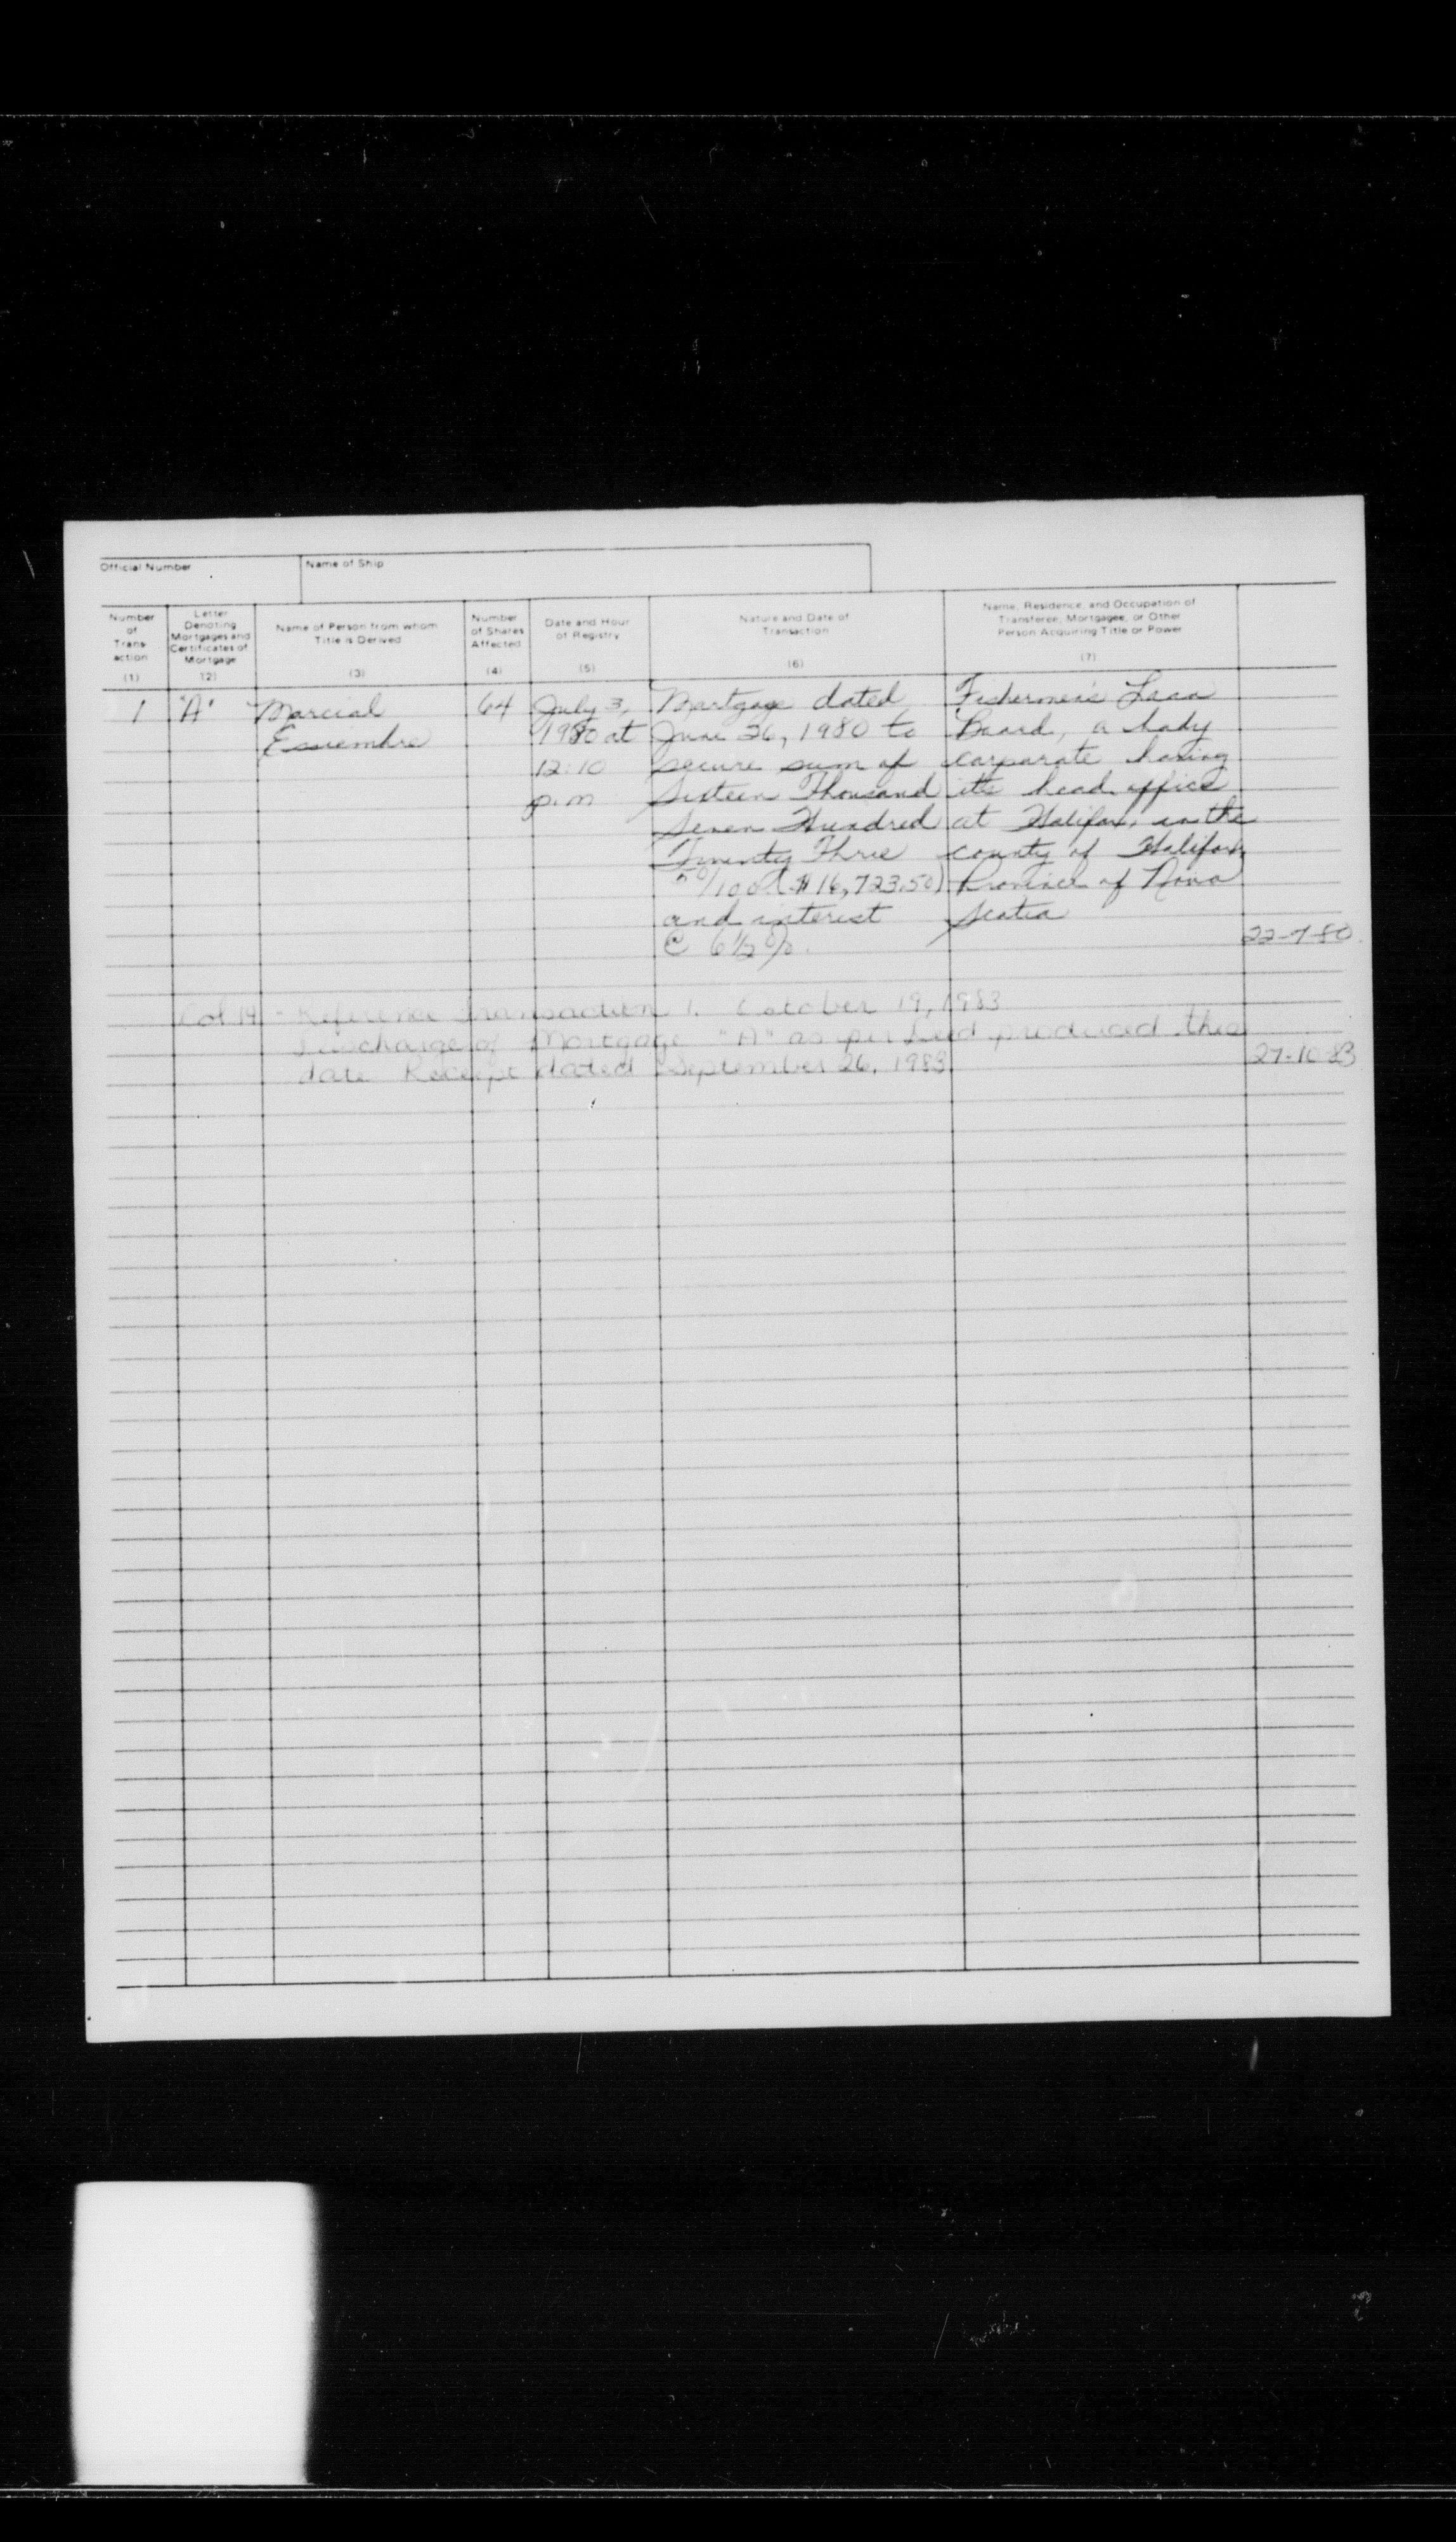 Official Number
Name of Ship
Number of Trans- action (1)
Letter Denoting Mortgages and Certificates of Mortgage (2)
Name of Person from whom Title is Derived (3)
Number of Shares Affected (4)
Date and Hour of Registry (5)
Nature and Date of Transaction (6)
Name, Residence, and Occupation of Transferee, Mortgagee, or Other Person Acquiring Title or Power (7)
1 "A" Marcial 64 July 3, Mortgage dated Fishermen's Loan
Essiembre 1980 at June 26, 1980 to Board, a body
12:10 secure sum of corporate having
p.m Sixteen Thousand its head office
Seven Hundred at Halifax, in the
Twenty Three county of Halifax,
50/100 ($16,723.50) Province of Nova
and interest Scotia
@ 6½%. 22-7-80
Col 14 - Reference Transaction 1. October 19, 1983
Discharge of Mortgage "A" as per deed produced this
date Receipt dated September 26, 1983. 27-10-83